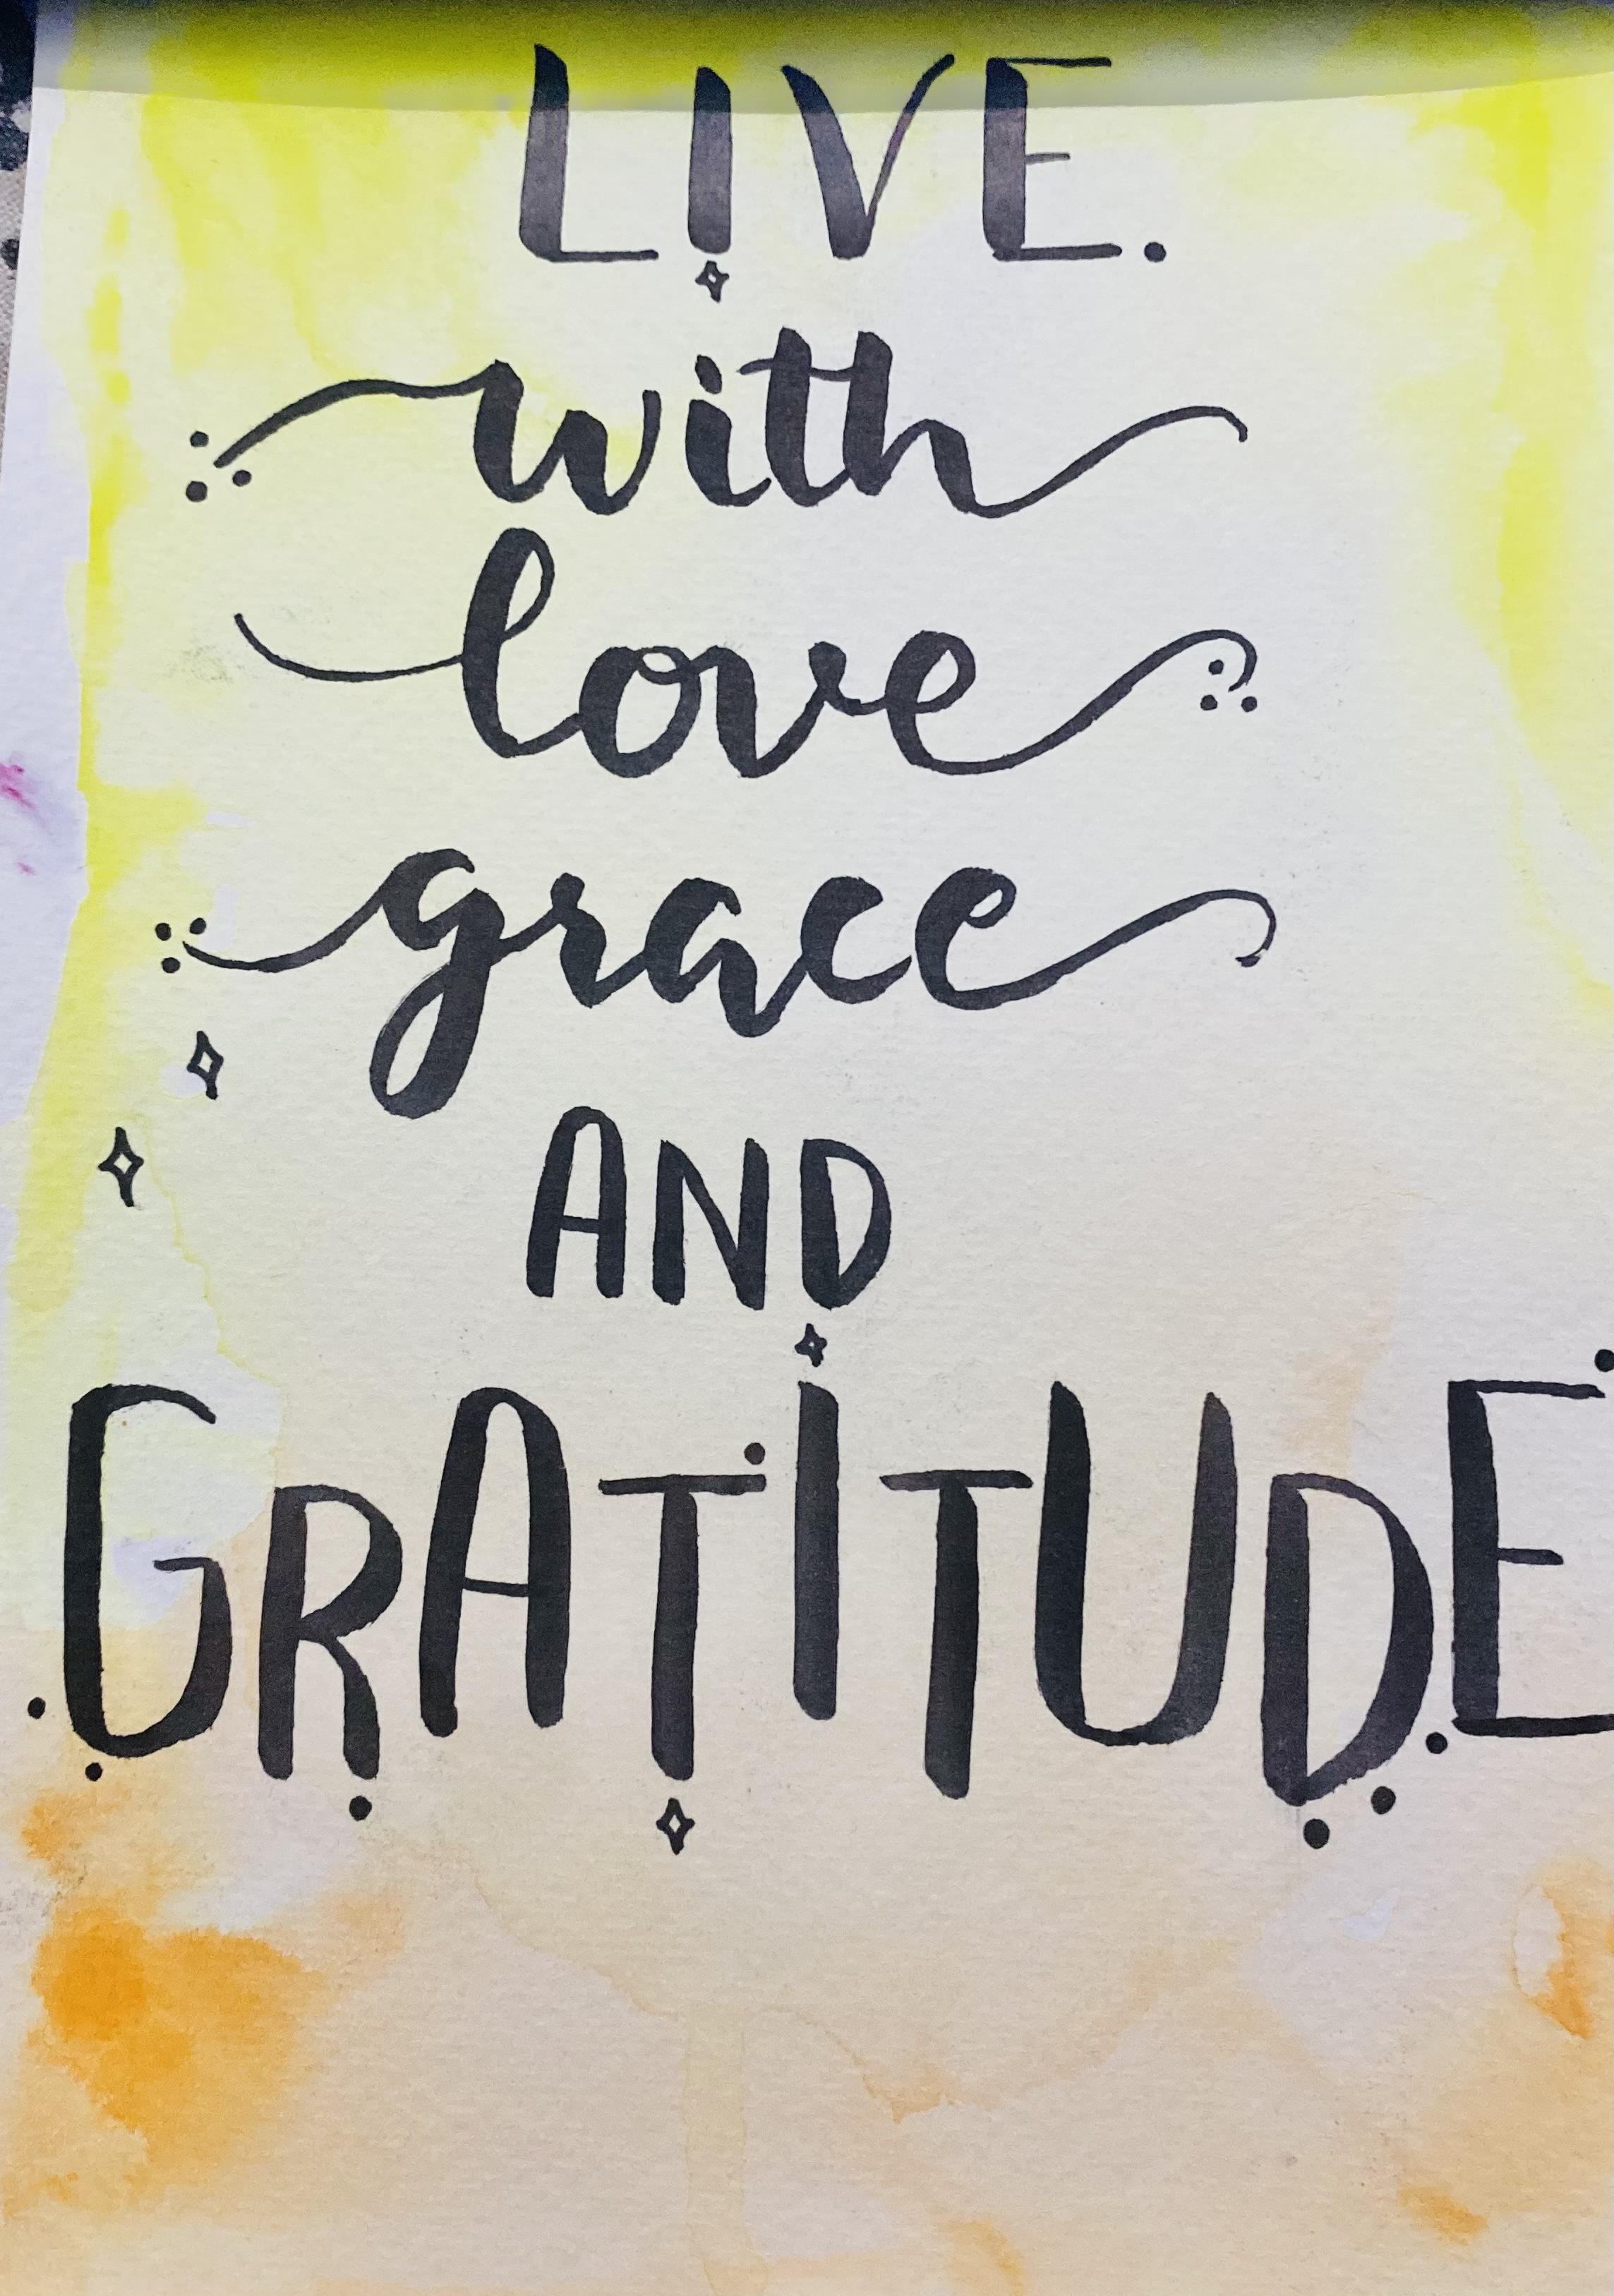 LIVE.
with
love
grace
AND
GRATITUDE